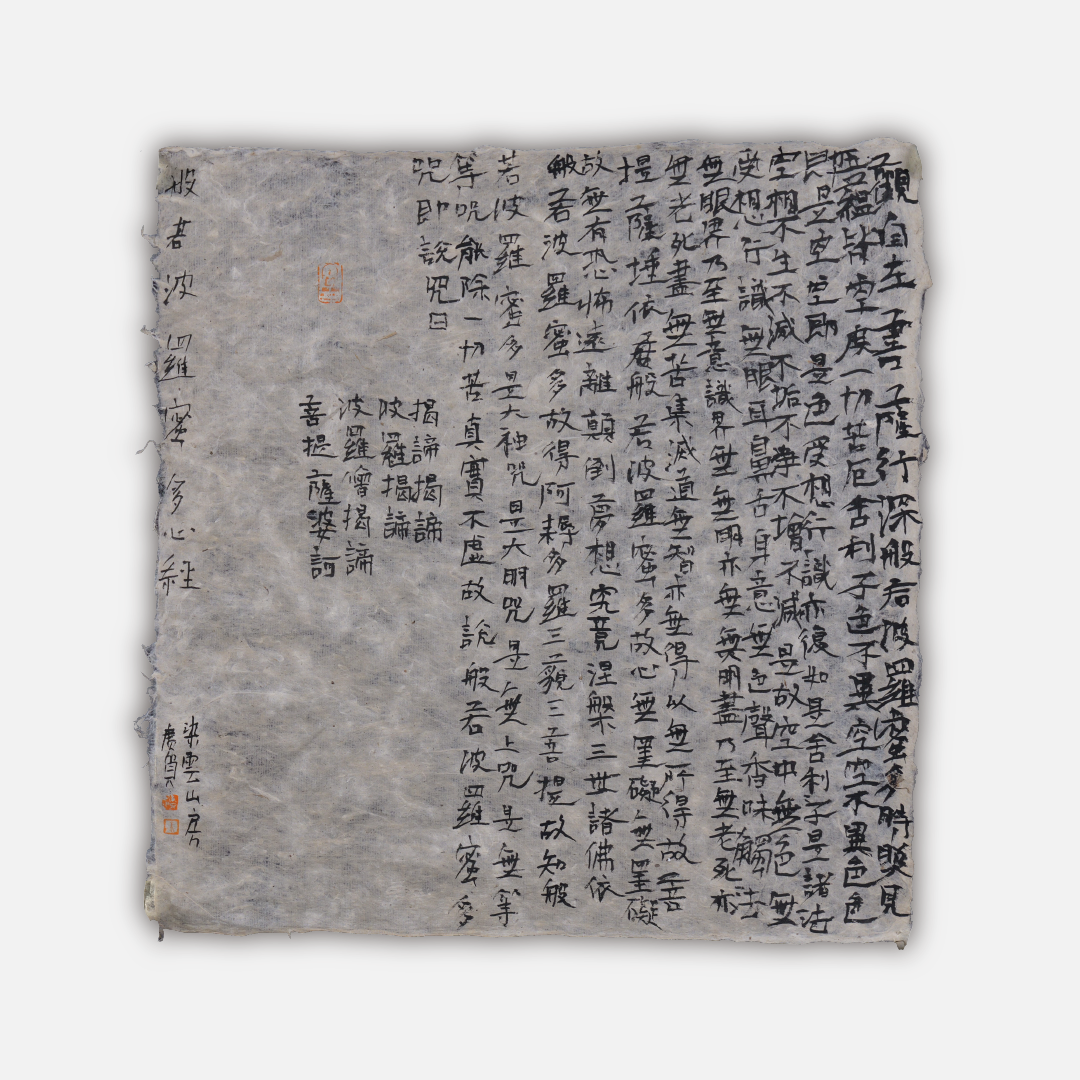 觀自在菩薩行深般若波羅蜜多時照見
五蘊皆空度一切苦厄舍利子色不異空空不異色色
即是空空即是色受想行識亦復如是舍利子是諸法
空相不生不滅不垢不淨不增不減是故空中無色無
受想行識無眼耳鼻舌身意無色聲香味觸法
無眼界乃至無意識界無無明亦無無明盡乃至無老死亦
無老死盡無苦集滅道無智亦無得以無所得故菩
提薩埵依般若波羅蜜多故心無罣礙無罣礙
故無有恐怖遠離顛倒夢想究竟涅槃三世諸佛依
般若波羅蜜多故得阿耨多羅三藐三菩提故知般
若波羅蜜多是大神咒是大明咒是無上咒是無等
等咒能除一切苦真實不虛故說般若波羅蜜多
咒即說咒曰
揭諦揭諦
波羅揭諦
波羅僧揭諦
菩提薩婆訶
般若波羅蜜多心經
雲山房